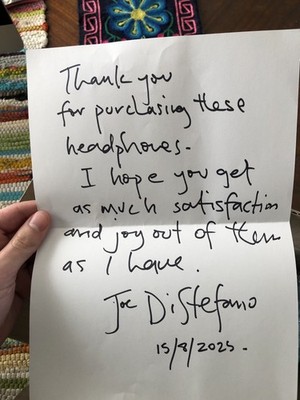 Thank you
for purchasing these
headphones.
I hope you get
as much satisfaction
and joy out of them
as I have.
Joe DiStefano
15/8/2025.